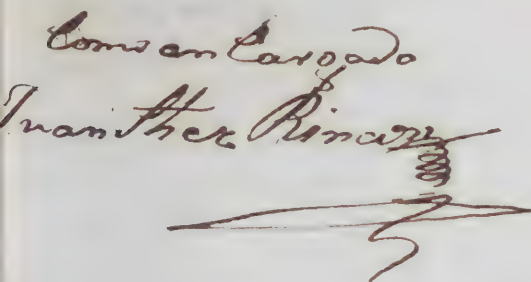 Como en Cargado
Juan Sher Rinary